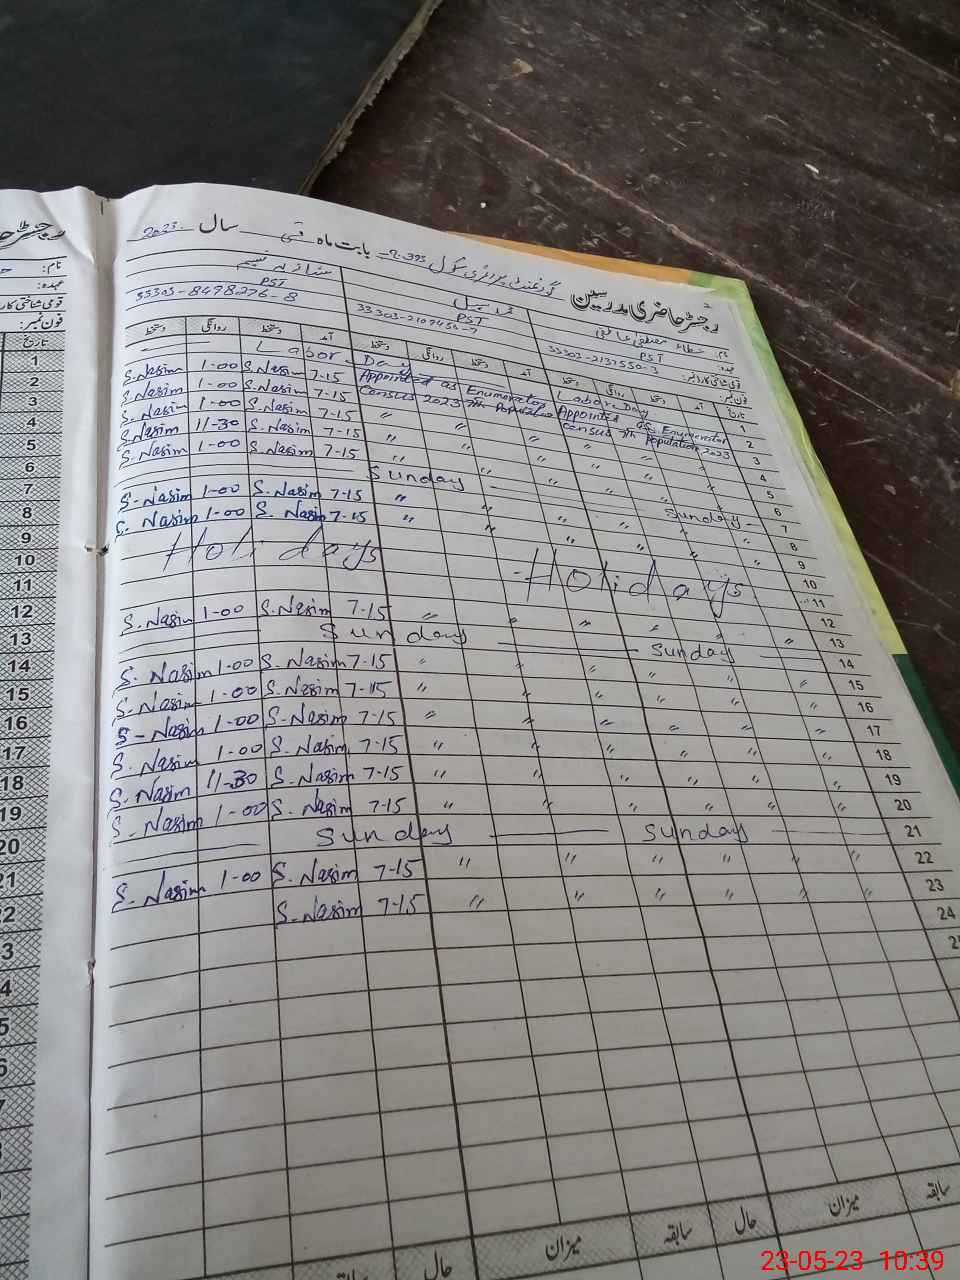 رجسٹر حاضری مدرسین
گورنمنٹ پرائمری سکول بابت ماہ مئی سال 2023
نام:
عہدہ: PST
قومی شناختی کارڈ نمبر: 33303-2137550-3
فون نمبر:
PST
33303-2109454-7
PST
33303-8498276-8
تاریخ آمد دستخط روانگی دستخط آمد دستخط روانگی دستخط آمد دستخط روانگی دستخط
1 Labor Day Labor Day
2 Appointed as Enumerator Appointed as Enumerator 7-15 S.Nasim 1-00 S.Nasim
3 Census 7th Population 2023 Census 2023 7th Population 7-15 S.Nasim 1-00 S.Nasim
4 " " " " " " 7-15 S.Nasim 1-00 S.Nasim
5 " " " " " " 7-15 S.Nasim 11-30 S.Nasim
6 " " " " " " 7-15 S.Nasim 1-00 S.Nasim
7 Sunday Sunday
8 " " " " " " 7-15 S.Nasim 1-00 S-Nasim
9 " " " " " " 7-15 S.Nasim 1-00 S.Nasim
10 Holidays Holidays
11
12
13 " " " " " " 7-15 S.Nasim 1-00 S.Nasim
14 Sunday Sunday
15 " " " " " " 7-15 S.Nasim 1-00 S-Nasim
16 " " " " " " 7-15 S.Nasim 1-00 S-Nasim
17 " " " " " " 7-15 S-Nasim 1-00 S-Nasim
18 " " " " " " 7-15 S.Nasim 1-00 S.Nasim
19 " " " " " " 7-15 S.Nasim 11-30 S.Nasim
20 " " " " " " 7-15 S.Nasim 1-00 S-Nasim
21 Sunday Sunday
22 " " " " " " 7-15 S.Nasim 1-00 S.Nasim
23 " " " " " " 7-15 S-Nasim
24
سابقہ میزان حال سابقہ میزان حال
نام:
عہدہ:
فون نمبر:
تاریخ
1
2
3
4
5
6
7
8
9
10
11
12
13
14
15
16
17
18
19
20
23-05-23 10:39